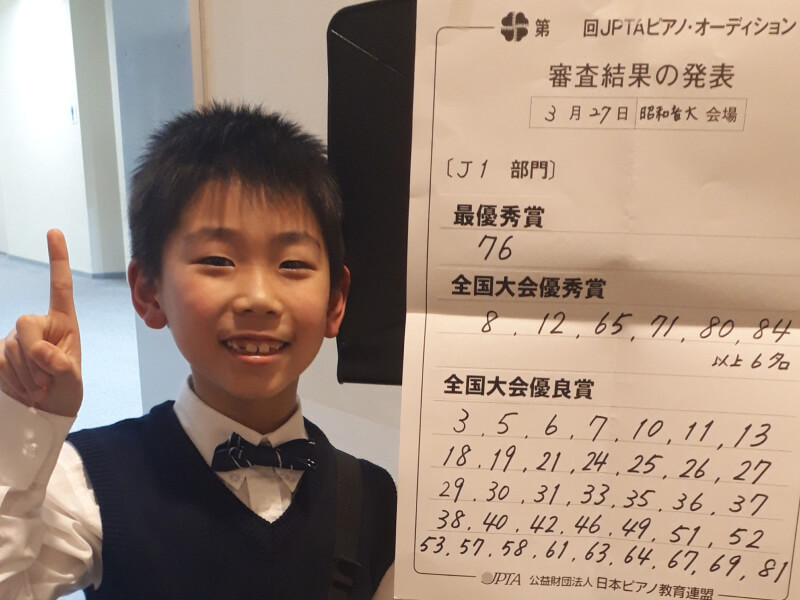 第 回JPTAピアノ・オーディション
審査結果の発表
3月27日 昭和音大 会場
〔J1 部門〕
最優秀賞
76
全国大会優秀賞
8 . 12 , 65 , 71 , 80 , 84
以上6名
全国大会優良賞
3 , 5 , 6 , 7 , 10 , 11 , 13
18 . 19 , 21 , 24 , 25 , 26 , 27
29 . 30 , 31 , 33 , 35 , 36 , 37
38 . 40 , 42 , 46 , 49 , 51 , 52
53 , 57 , 58 , 61 , 63 , 64 , 67 , 69 , 81
JPTA 公益財団法人 日本ピアノ教育連盟